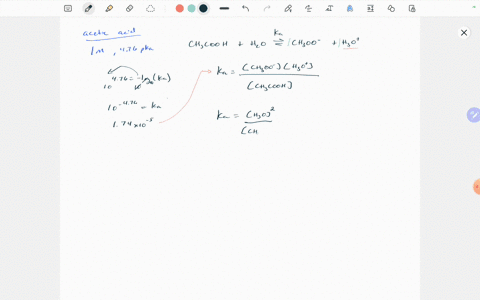 acetic acid
1M, 4.76 pKa
CH3COOH + H2O ⇌ CH3OO- + H3O+
Ka
4.76 = -log(Ka)
10 10
10^-4.76 = Ka
1.74x10^-5
Ka = [CH3OO-][H3O+]
[CH3COOH]
Ka = [H3O]^2
[CH